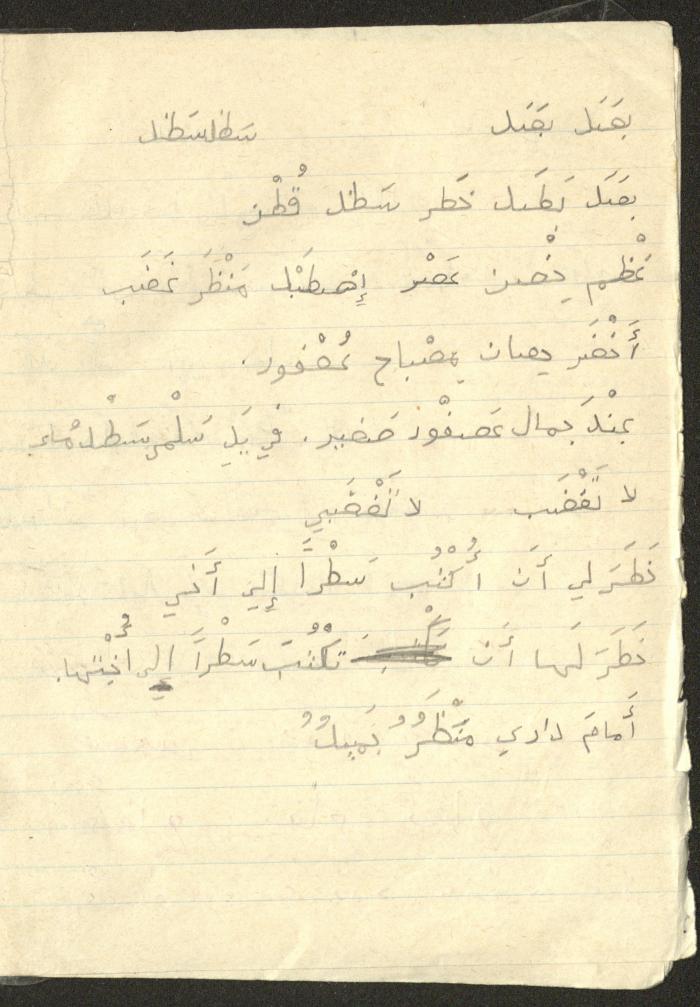 بصَل بصَل سَطل سَطل
بصَل بَطَل خَطر سَطل قُطْن
عْظم حْصن عَصْر إِصطَبْل مَنْظَر غَضَب
أَخْضَر حصان مِصْباح عُصْفور.
عِنْدَ جمال عَصفْور صَغير. في يَدِ سَلْمى سَطْل مْاء.
لا تَغْضَب لا تَغْضَبي
خَطَرَ لي أَن أُكْتُب سَطْراً إِلى أَخي
خَطَرَ لَها أَن تَكْتُبَ سَطْراً إِلى أُخْتِها.
أَمامَ داري مَنْظَرٌ جَميلٌ